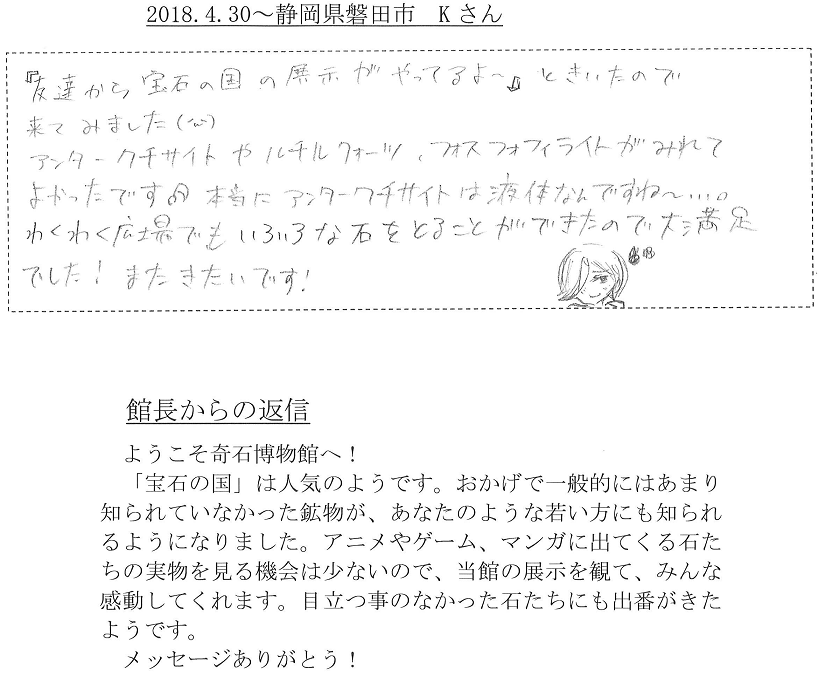 2018.4.30～静岡県磐田市　Kさん
『友達から宝石の国の展示がやってるよ～』ときいたので
来てみました(^ω^)
アンタークチサイトやルチルクォーツ、フォスフォフィライトがみれて
よかったです 本当にアンタークチサイトは液体なんですね～…。
わくわく広場でもいろいろな石をとることができたので大満足
でした！またきたいです！
館長からの返信
ようこそ奇石博物館へ！
「宝石の国」は人気のようです。おかげで一般的にはあまり
知られていなかった鉱物が、あなたのような若い方にも知られ
るようになりました。アニメやゲーム、マンガに出てくる石た
ちの実物を見る機会は少ないので、当館の展示を観て、みんな
感動してくれます。目立つ事のなかった石たちにも出番がきた
ようです。
メッセージありがとう！